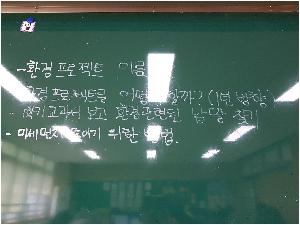 - 환경 프로젝트 이름
- 환경 프로젝트를 어떻게 할까? (1번 방향)
- 읽기 교과서 보고 환경관련된 낱말 찾기
- 미세먼지 줄이기 위한 방법.